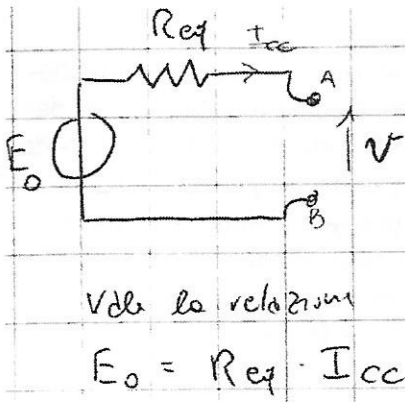 Req
Icc
A
E₀
V
B
Vale la relazione
E₀ = Req · Icc